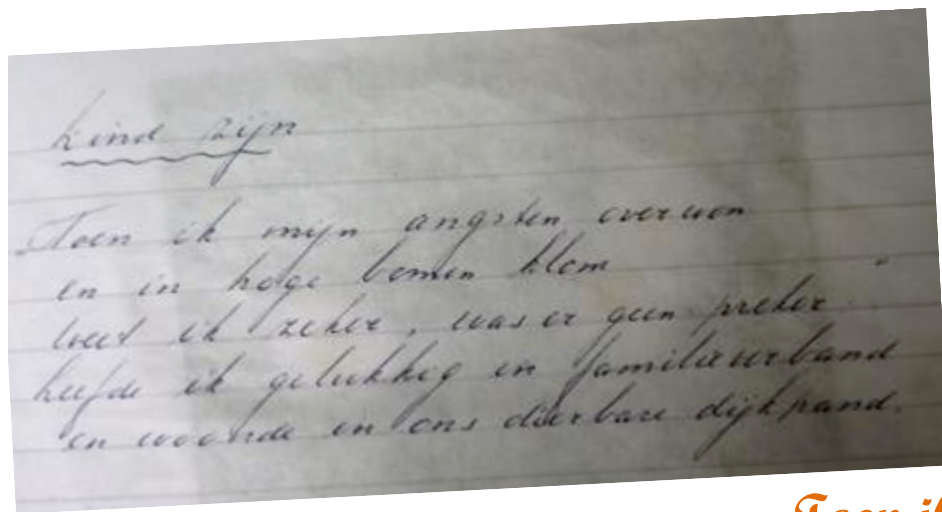 Kind zijn
"Toen ik mijn angsten overwon
en in hoge bomen klom
weet ik zeker, was er geen preker"
leefde ik gelukkig in familieverband
en woonde in ons dierbare dijkpand.
Toen i